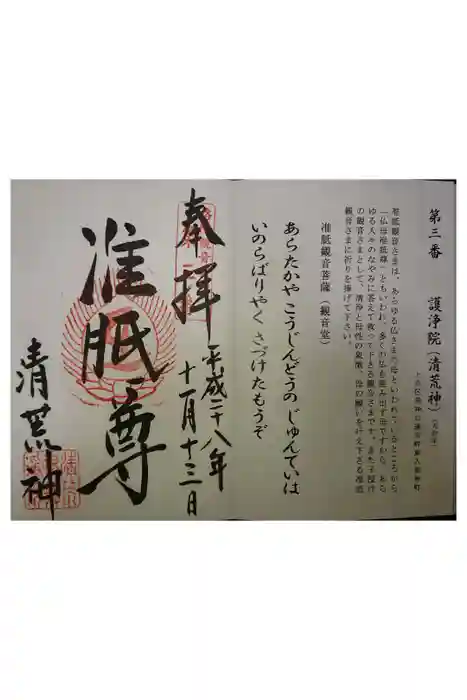 第三番 護浄院(清荒神)(天台宗)
准胝観音さまは、あらゆる仏さまの母といわれているところから
「仏母准胝尊」ともいわれ、多くの仏を産み出す母ですから、あら
ゆる人々のなやみに答えて救って下さる観音さまです。また子授け
の観音さまとして、清浄と母性の象徴、母の願いを叶え下さる准胝
観音さまに祈りを捧げて下さい。
准胝観音菩薩(観音堂)
あらたかや こうじんどうの じゅんていは
いのらばりやく さづけたもうぞ
奉拝
平成二十八年
十一月十三日
准胝尊
清荒神